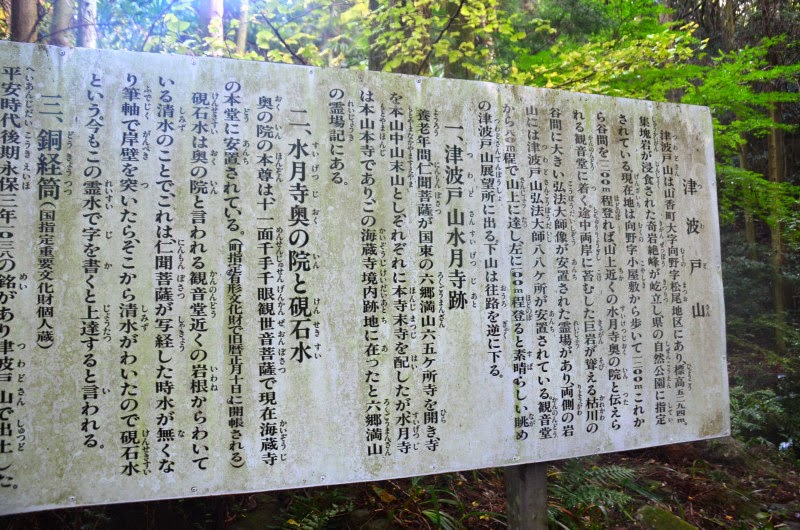 津波戸山
津波戸山は山香町大字向野字松尾地区にあり、標高五二九四m。
集塊岩が浸食された奇岩絶峰が屹立し県の自然公園に指定
されている。現在地は向野字小屋敷から歩いて一二〇〇mこれか
ら谷間を一二〇〇m程登れば山上近くの水月寺奥の院と伝えら
れる観音堂に着く。途中両岸に苔むした巨岩が聳える枯川の
谷間に大きい弘法大師像が安置された霊場があり両側の岩
山には津波戸山弘法大師八八ヶ所が安置されている観音堂
から八〇m程で山上に達し左に一〇〇m程登ると素晴らしい眺め
の津波戸山展望所に出る。下山は往路を逆に下る。
一、津波戸山水月寺跡
養老年間仁聞菩薩が国東の六郷満山六五ヶ所寺を開き寺
を本山中山末山としそれぞれに本寺末寺を配したが水月寺
は本山本寺でありこの海蔵寺境内跡地に在ったと六郷満山
の霊場記にある。
二、水月寺奥の院と硯石水
奥の院の本尊は十一面千手千眼観世音菩薩で現在海蔵寺
の本堂に安置されている。(町指定有形文化財で旧暦五月十日に開帳される)
硯石水は奥の院と言われる観音堂近くの岩根からわいて
いる清水のことでこれは仁聞菩薩が写経した時水が無くな
り筆軸で岸壁を突いたらそこから清水がわいたので硯石水
という。今もこの霊水で字を書くと上達すると言われる。
三、銅経筒(国指定重要文化財個人蔵)
平安時代後期永保三年一〇八三の銘があり津波戸山で出土した。